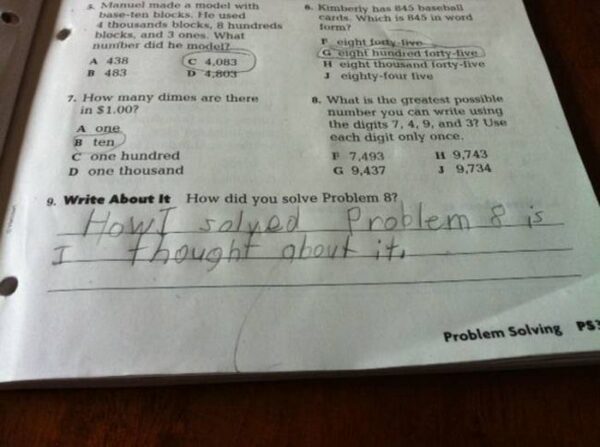 5. Manuel made a model with
base-ten blocks. He used
4 thousands blocks, 8 hundreds
blocks, and 3 ones. What
number did he model?
A 438 C 4,083
B 483 D 4,803
6. Kimberly has 845 baseball
cards. Which is 845 in word
form?
F eight forty-five
G eight hundred forty-five
H eight thousand forty-five
J eighty-four five
7. How many dimes are there
in $1.00?
A one
B ten
C one hundred
D one thousand
8. What is the greatest possible
number you can write using
the digits 7, 4, 9, and 3? Use
each digit only once.
F 7,493 H 9,743
G 9,437 J 9,734
9. Write About It How did you solve Problem 8?
How I solved Problem 8 is
I thought about it.
Problem Solving PS3